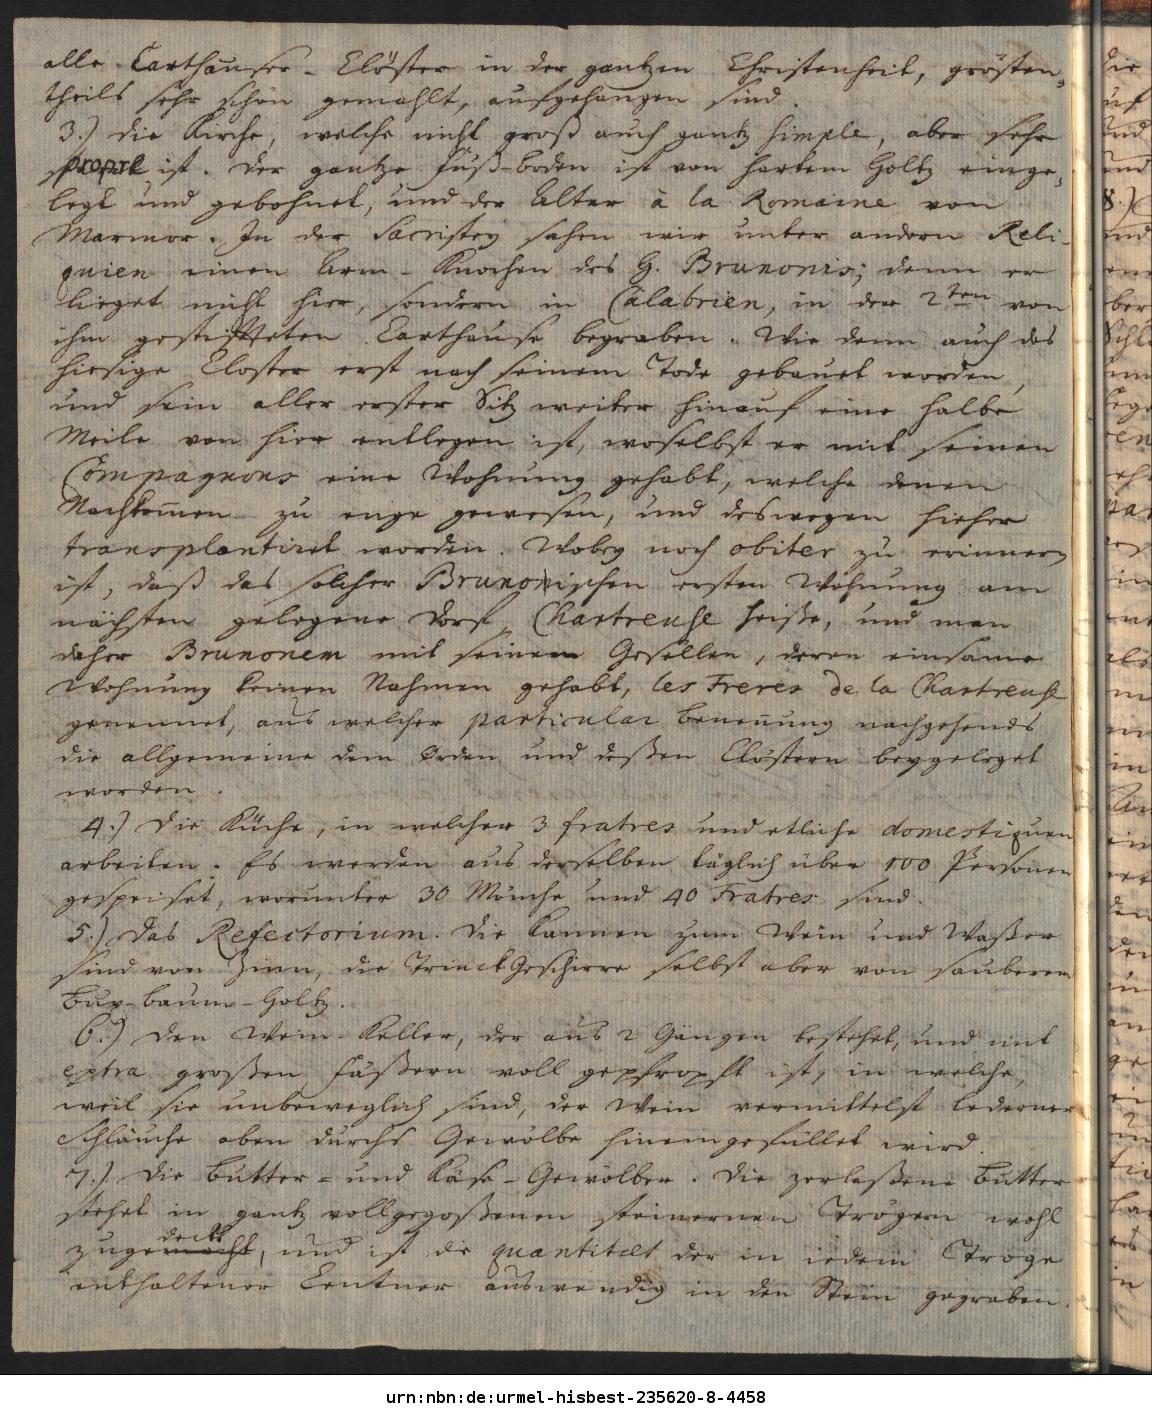 alle Carthäuser-Clöster in der gantzen Christenheit, grösten-
theils sehr schön gemahlt, aufgehangen sind.
3.) die Kirche, welche nicht groß auch gantz simple, aber sehr
propre ist. Der gantze Fuß-boden ist von hartem Holtz einge-
legt und gebohnet, und der Altar à la Romaine von
Marmor. In der Sacristey sahen wir unter andern Reli-
quien einen Arm-Knochen des H. Brunonis; denn er
lieget nicht hier, sondern in Calabrien, in der 2ten von
ihm gestiffteten Carthause begraben. Wie denn auch das
hiesige Closter erst nach seinem Tode gebauet worden,
und sein aller erster Sitz weiter hinauf eine halbe
Meile von hier entlegen ist, woselbst er mit seinen
Compagnons eine Wohnung gehabt, welche denen
Nachkom̄en zu enge gewesen, und deswegen hieher
transplantiret worden. Wobey noch obiter zu erinnern
ist, daß das solcher Brunonischen ersten Wohnung am
nächsten gelegene Dorf, Chartreuse heiße, und man
daher Brunonem mit seinen Gesellen, deren einsame
Wohnung keinen Nahmen gehabt, les Freres de la Chartreuse
genennet, aus welcher particular Benen̄ung nachgehends
die allgemeine dem Orden und deßen Clöstern beygeleget
worden.
4.) Die Küche, in welcher 3 fratres und etliche domestiquen
arbeiten. Es werden aus derselben täglich über 100 Personen
gespeiset, worunter 30 Mönche und 40 Fratres sind.
5.) Das Refectorium. Die Kannen zum Wein und Waßer
sind von Zinn, die Trinck Geschirre selbst aber von sauberem
Bux-baum-Holtz.
6.) Den Wein-Keller, der aus 2 Gängen bestehet, und mit
extra großen Fäßern voll gepfropft ist, in welche,
weil sie unbeweglich sind, der Wein vermittelst lederner
Schläuche oben durchs Gewölbe hineingefüllet wird.
7.) Die Butter- und Käse-Gewölber. Die zerlaßene Butter
stehet in gantz vollgegoßenen steinernen Trögen wohl
zugemacht deckt, und ist die quantitæt der in iedem Troge
enthaltener Centner auswendig in den Stein gegraben.
urn:nbn:de:urmel-hisbest-235620-8-4458